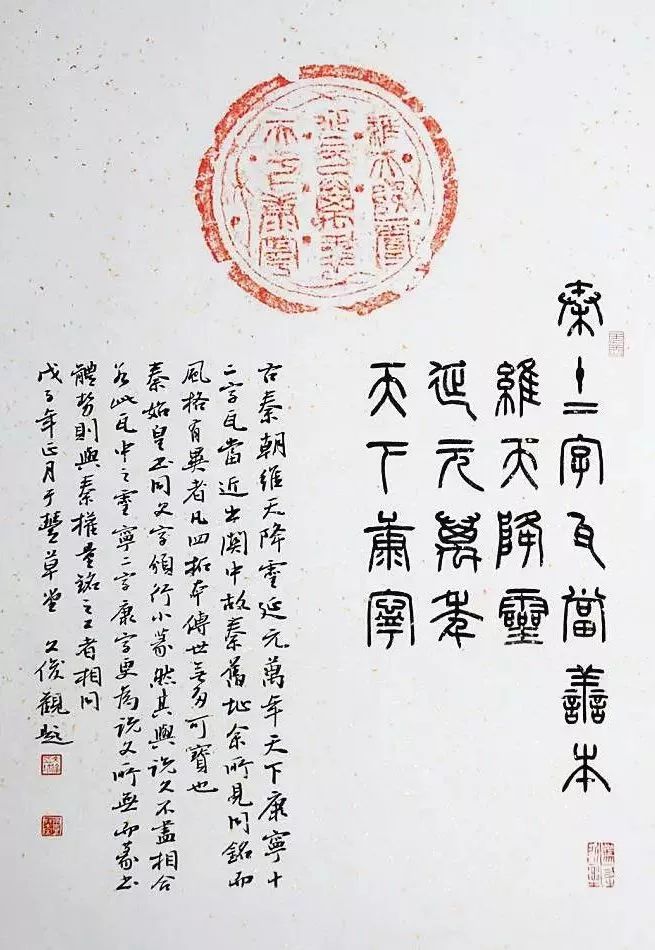 維天降靈
延元萬年
天下康寧
秦十二字瓦當善本
維天降靈
延元萬年
天下康寧
古秦朝維天降靈延元萬年天下康寧十
二字瓦當近出關中故秦舊址余所見同銘而
風格有異者凡四拓本傳世無多可寶也
秦始皇書同文字頒行小篆然其與說文不盡相合
若此瓦中之靈寧二字康字更為說文所無而篆書
體勢則與秦權量銘之工者相同
戊子年正月于豐草堂 文俊觀題